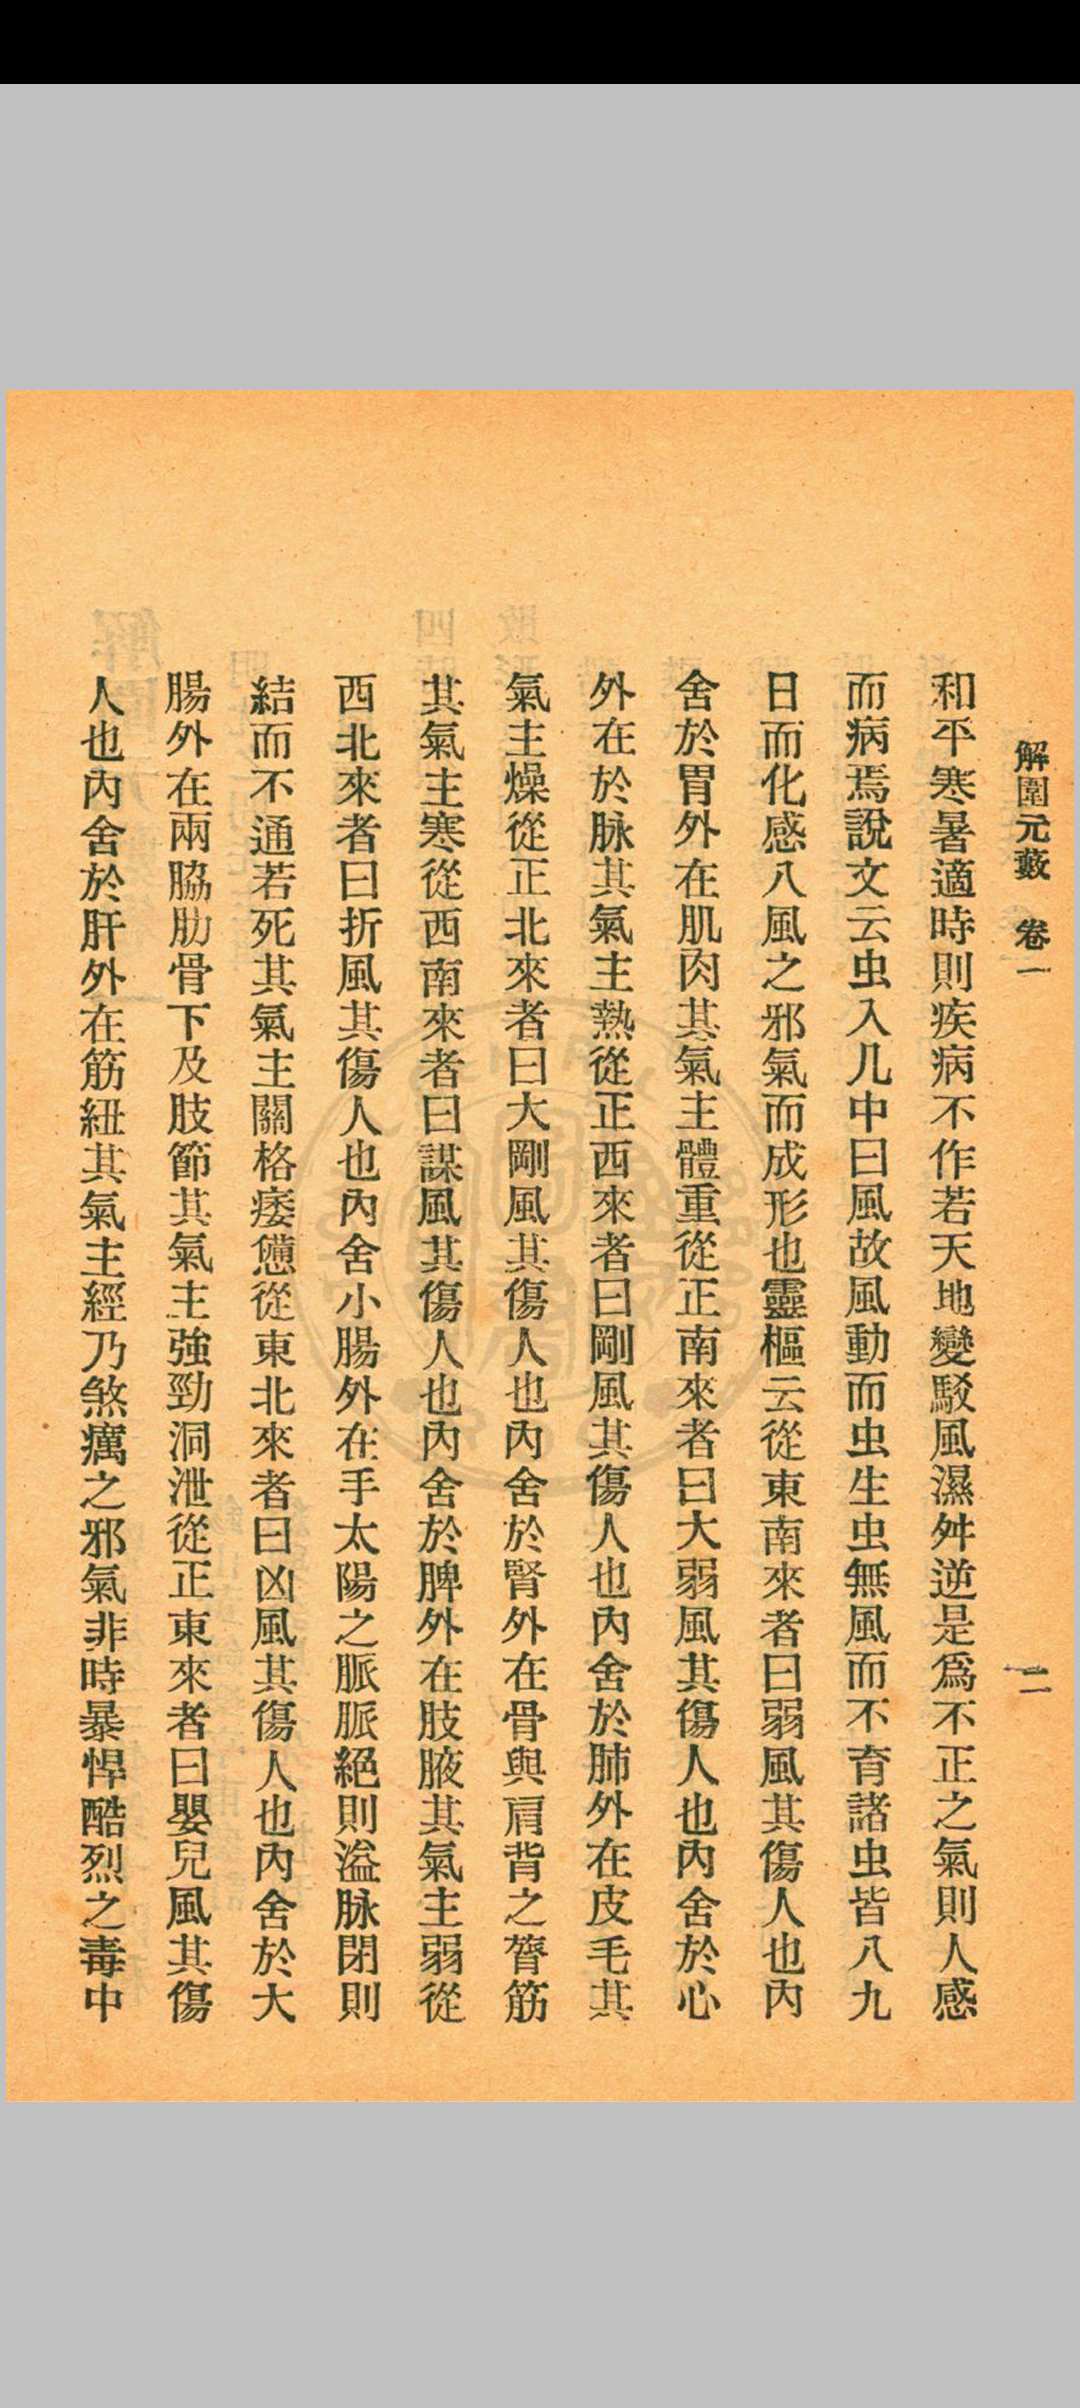 解圍元藪 卷一 二
和平寒暑適時則疾病不作若天地變駁風濕舛逆是爲不正之氣則人感
而病焉說文云虫入几中曰風故風動而虫生虫無風而不育諸虫皆八九
日而化感八風之邪氣而成形也靈樞云從東南來者曰弱風其傷人也內
舍於胃外在肌肉其氣主體重從正南來者曰大弱風其傷人也內舍於心
外在於脉其氣主熱從正西來者曰剛風其傷人也內舍於肺外在皮毛其
氣主燥從正北來者曰大剛風其傷人也內舍於腎外在骨與肩背之膂筋
其氣主寒從西南來者曰謀風其傷人也內舍於脾外在肢腋其氣主弱從
西北來者曰折風其傷人也內舍小腸外在手太陽之脈脈絕則溢脉閉則
結而不通若死其氣主關格痿憊從東北來者曰凶風其傷人也內舍於大
腸外在兩脇肋骨下及肢節其氣主強勁洞泄從正東來者曰嬰兒風其傷
人也內舍於肝外在筋紐其氣主經乃煞癘之邪氣非時暴悍酷烈之毒中